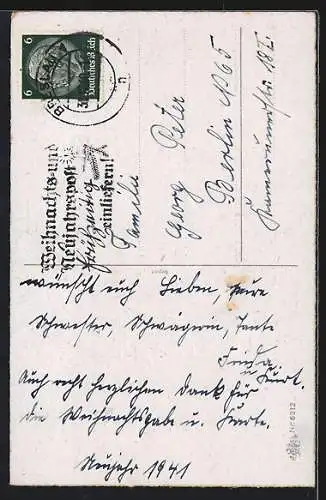 6
6
Deutsches Reich
Weihnachts- und
Neujahrspost
frühzeitig
einliefern!
Familie
Georg Peter
Berlin N 65
Kamerunerstr.
wünscht euch Lieben, eure
Schwester, Schwägerin, Tante
Frida
u. Kurt.
Auch recht herzlichen Dank für
die Weihnachtsgabe u. Karte.
Neujahr 1941